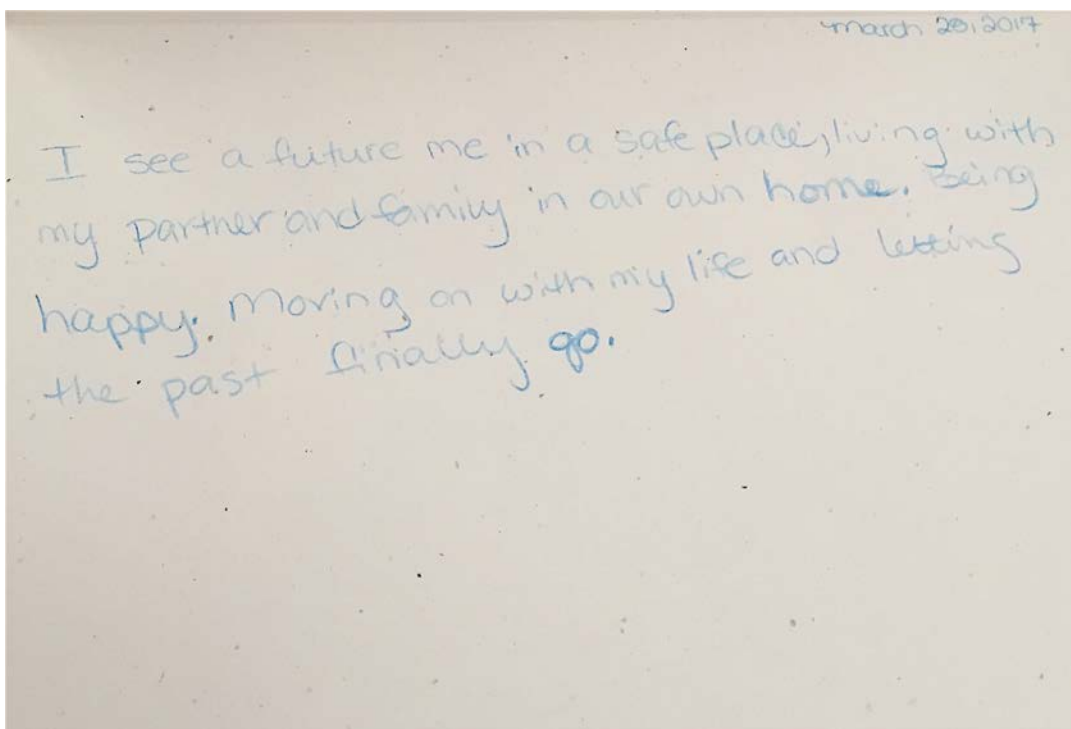 March 20, 2017
I see a future me in a safe place, living with
my partner and family in our own home. Being
happy. Moving on with my life and letting
the past finally go.